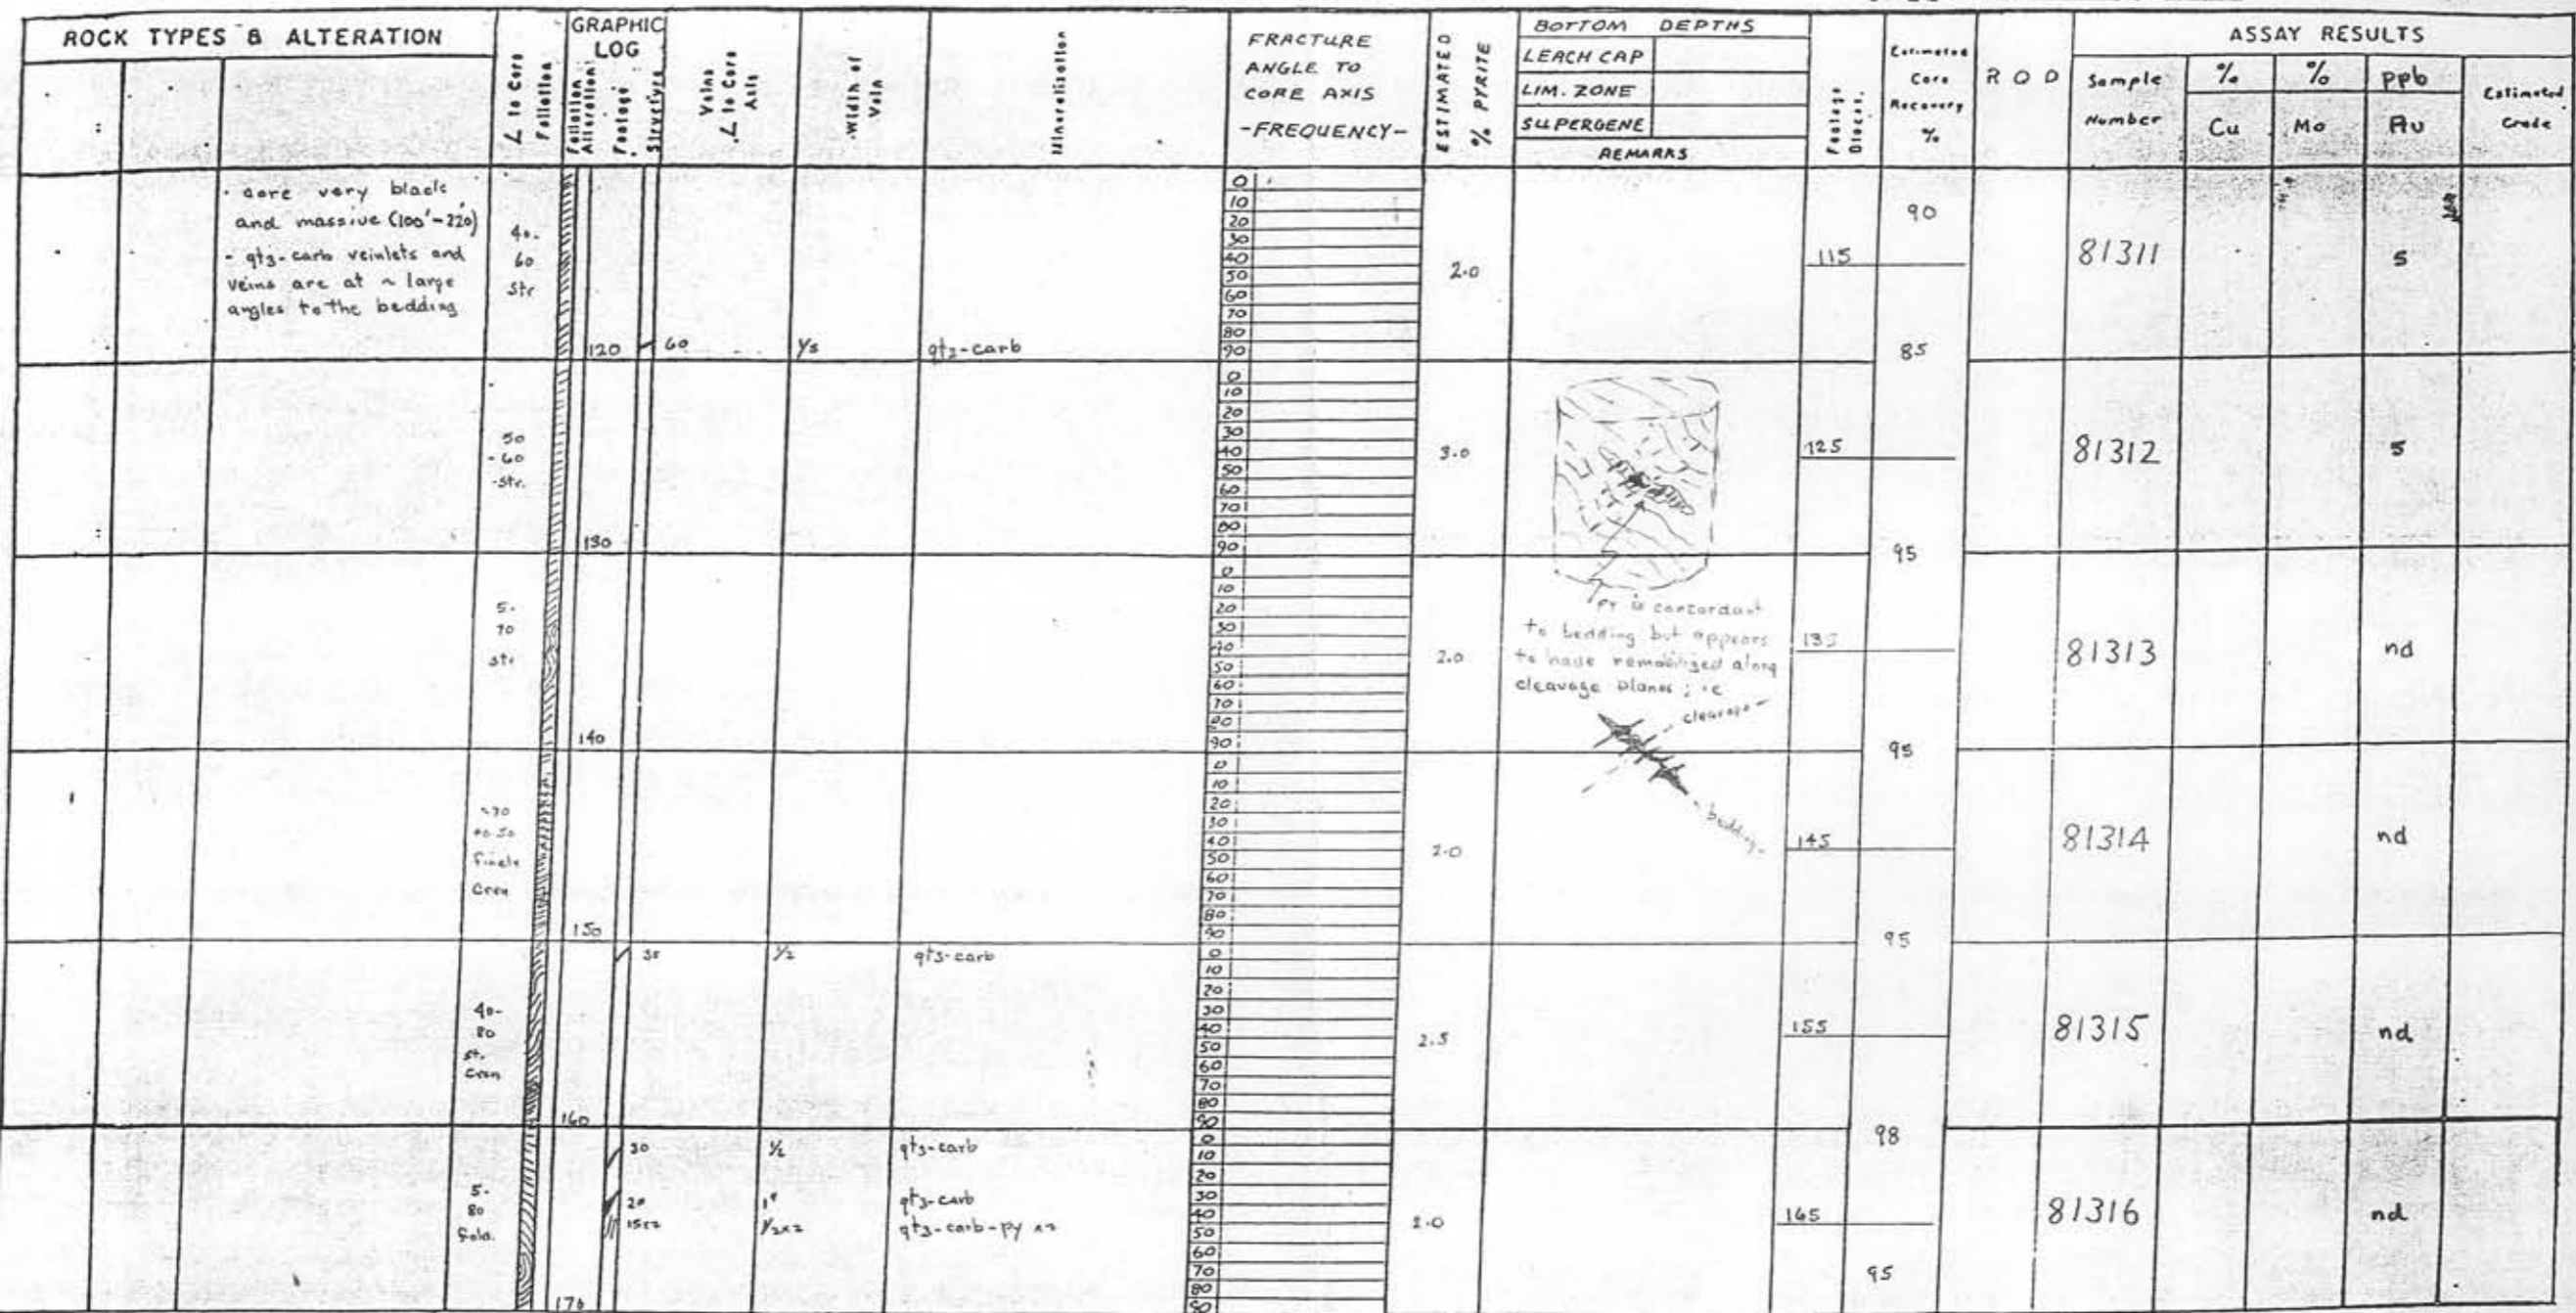 ROCK TYPES & ALTERATION
∠ to Core
Foliation
GRAPHIC
LOG
Foliation
Alteration
Footage
Structure
Veins
∠ to Core
Axis
Width of
Vein
Mineralization
FRACTURE
ANGLE TO
CORE AXIS
-FREQUENCY-
ESTIMATED
% PYRITE
BOTTOM DEPTHS
LEACH CAP
LIM. ZONE
SUPERGENE
REMARKS
Footage
Blocks.
Estimated
Core
Recovery
%
R Q D
ASSAY RESULTS
Sample
Number
%
Cu
%
Mo
ppb
Au
Estimated
Grade
core very black
and massive (100'-220')
- qtz-carb veinlets and
veins are at ~ large
angles to the bedding
40-
60
str
120 60 1/8 qtz-carb
0
10
20
30
40
50
60
70
80
90
2.0
115
90
85
81311 5
50
-60
-str.
130
0
10
20
30
40
50
60
70
80
90
3.0
125
95
81312 5
5-
70
str
140
0
10
20
30
40
50
60
70
80
90
2.0
py is concordant
to bedding but appears
to have remobilized along
cleavage planes ; ie
cleavage
bedding
135
95
81313 nd
finely
Cren
150
0
10
20
30
40
50
60
70
80
90
2.0
145
95
81314 nd
35 1/2 qtz-carb
40-
80
st.
Cren
160
0
10
20
30
40
50
60
70
80
90
2.5
155
98
81315 nd
30 1/2 qtz-carb
20 1" qtz-carb
15x2 1/2x2 qtz-carb-py x2
5-
80
fold.
170
0
10
20
30
40
50
60
70
80
90
2.0
165
95
81316 nd